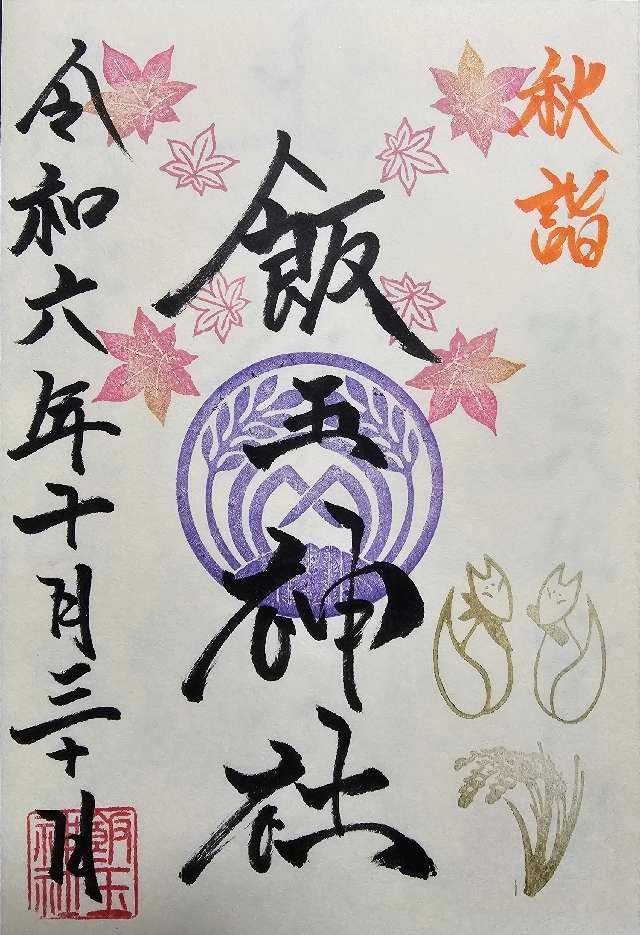 秋詣
飯玉神社
令和六年十月三十日
飯玉
神社